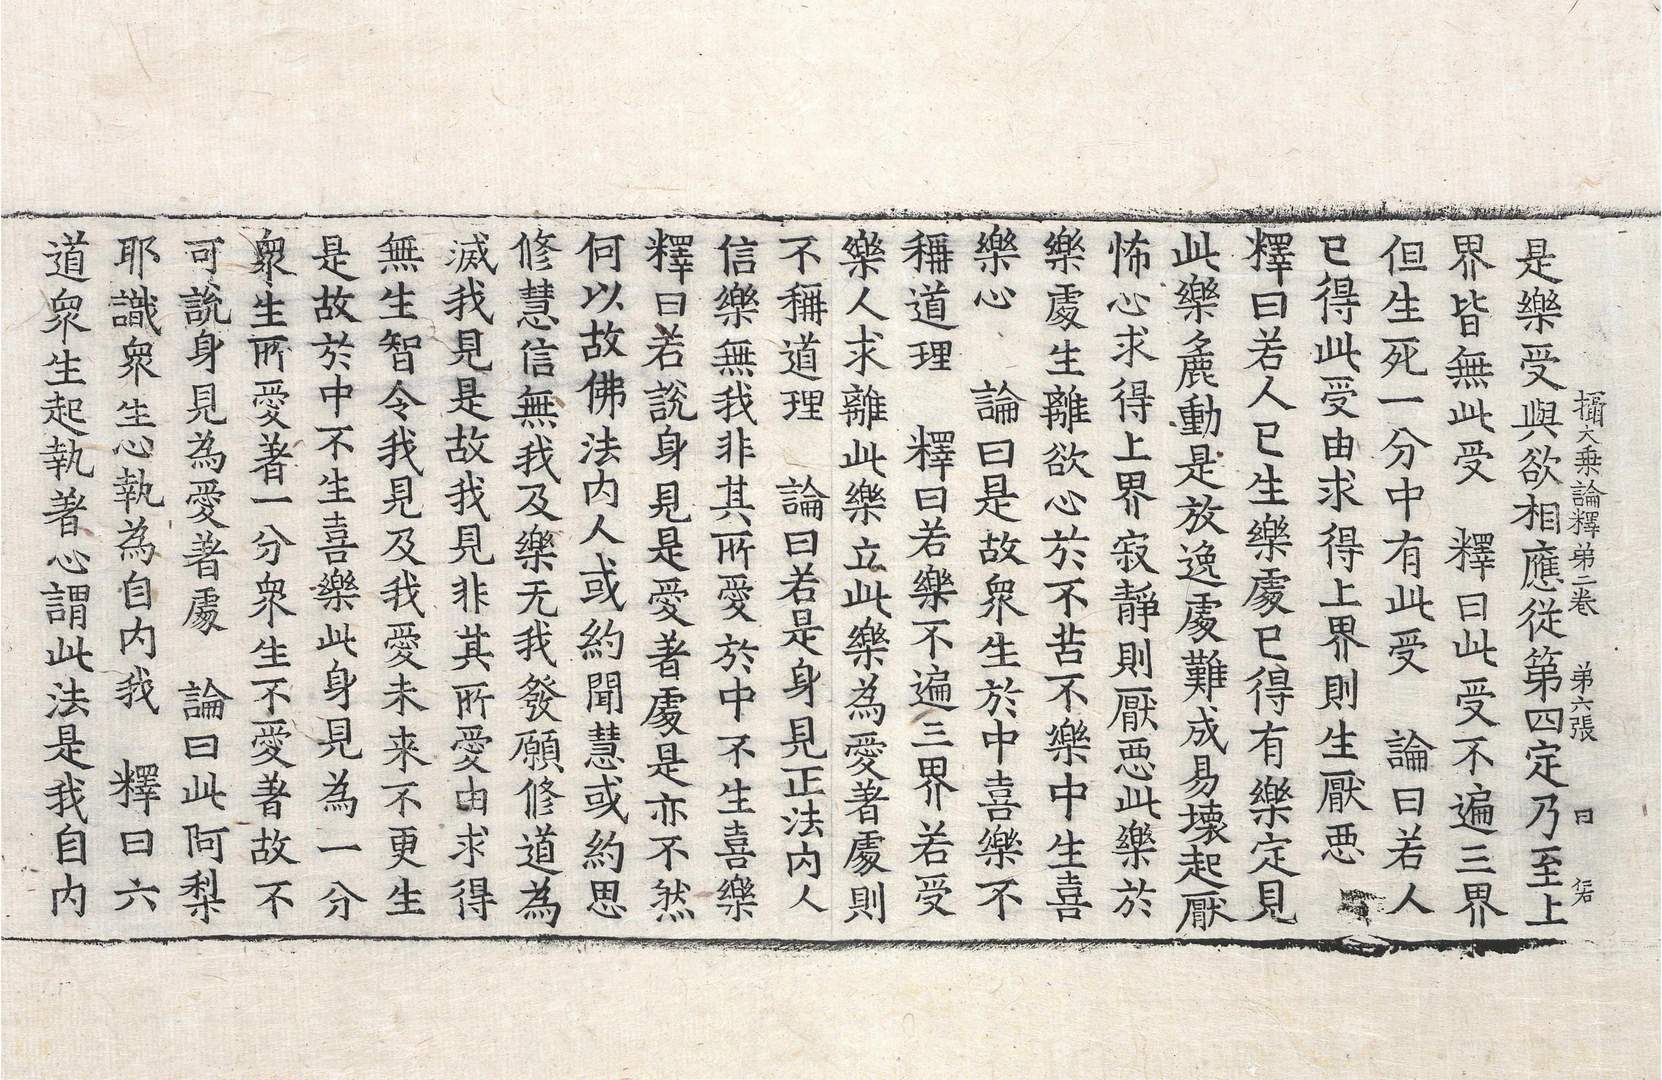 攝大乘論釋第二卷 第六張 曰
是樂受與欲相應從第四定乃至上
界皆無此受 釋曰此受不遍三界
但生死一分中有此受 論曰若人
已得此受由求得上界則生厭惡
釋曰若人已生樂處已得有樂定見
此樂麁動是放逸處難成易壞起厭
怖心求得上界寂靜則厭惡此樂於
樂處生離欲心於不苦不樂中生喜
樂心 論曰是故眾生於中喜樂不
稱道理 釋曰若樂不遍三界若受
樂人求離此樂立此樂為愛著處則
不稱道理 論曰若是身見正法內人
信樂無我非其所愛於中不生喜樂
釋曰若說身見是愛著處是亦不然
何以故佛法內人或約聞慧或約思
修慧信無我及樂无我發願修道為
滅我見是故我見非其所愛由求得
無生智令我見及我愛未来不更生
是故於中不生喜樂此身見為一分
眾生所愛著一分眾生不愛著故不
可說身見為愛著處 論曰此阿梨
耶識眾生心執為自內我 釋曰六
道眾生起執著心謂此法是我自內